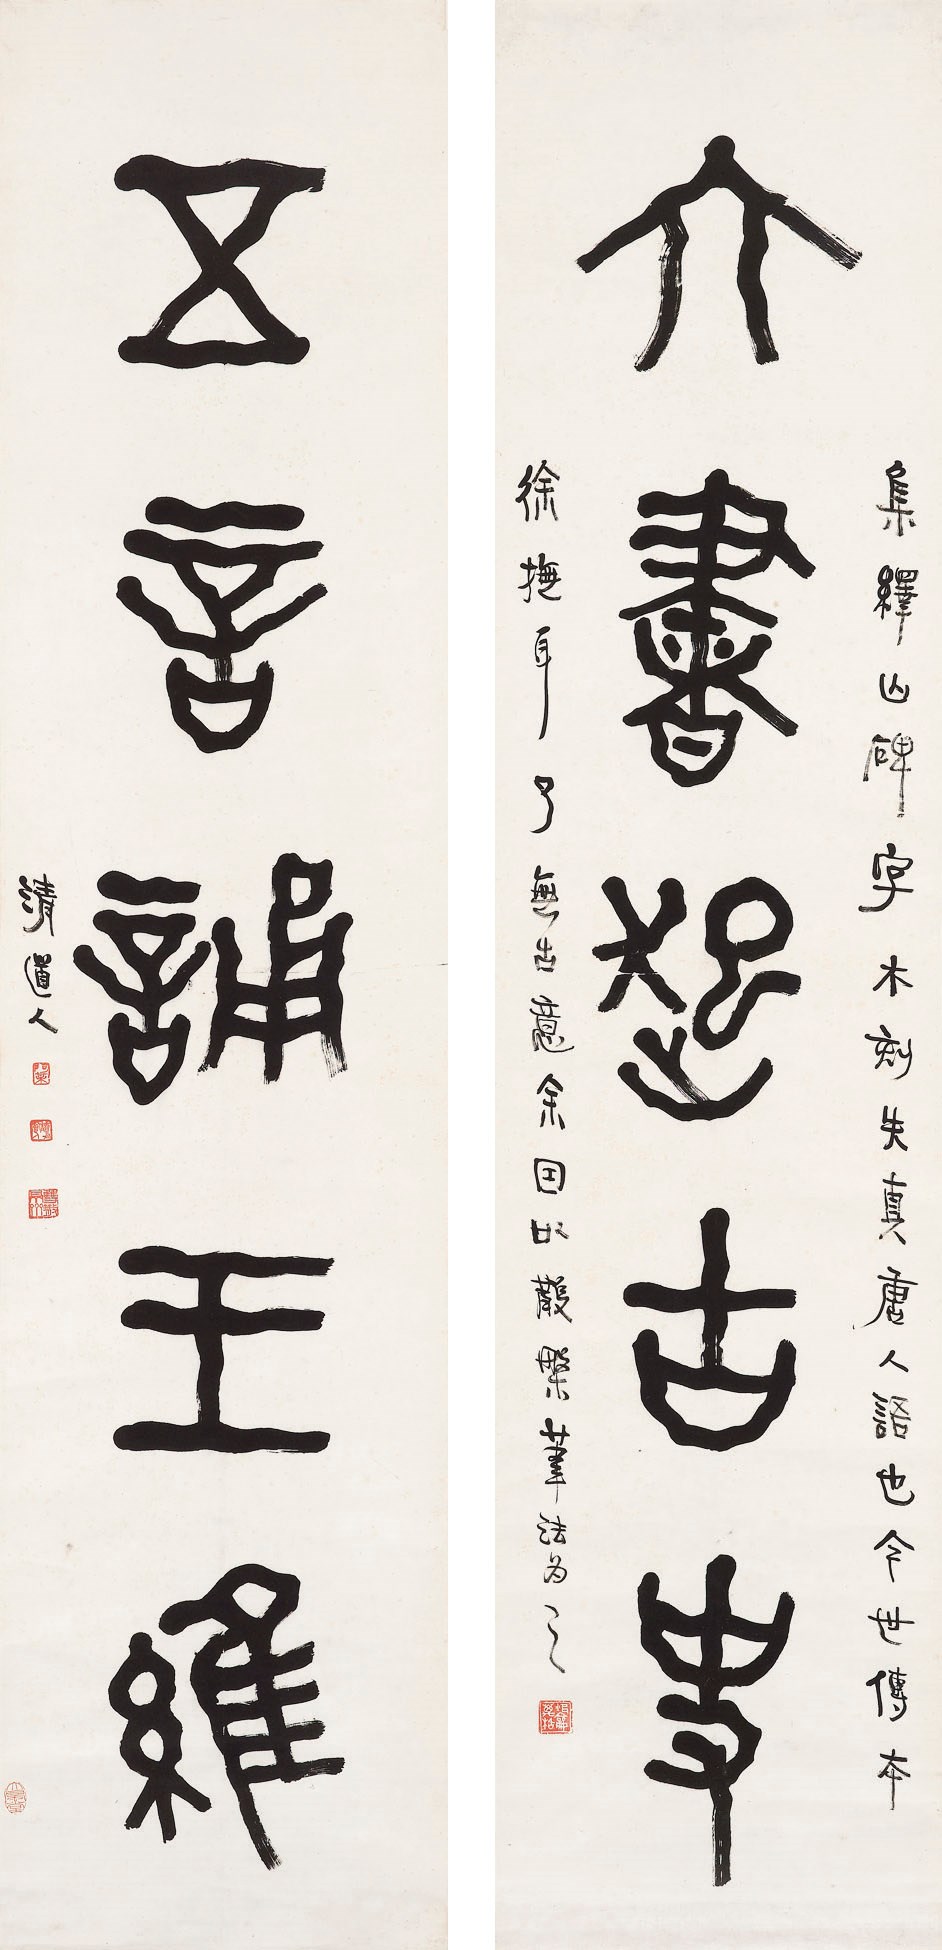 六書起古史
集繹山碑字木刻失真唐人語也今世傳本
徐撫耳了無古意余因以散槃筆法為之
五言誦王維
清道人